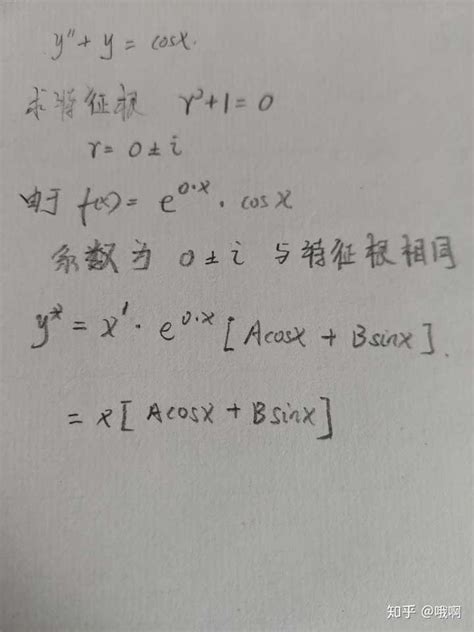 y"+y=cosx.
求特征根 r²+1=0
r=0±i
由于 f(x)=e^{0·x}·cosx
系数为 0±i 与特征根相同
y*=x¹·e^{0·x}[Acosx+Bsinx].
=x[Acosx+Bsinx]
知乎 @哦啊